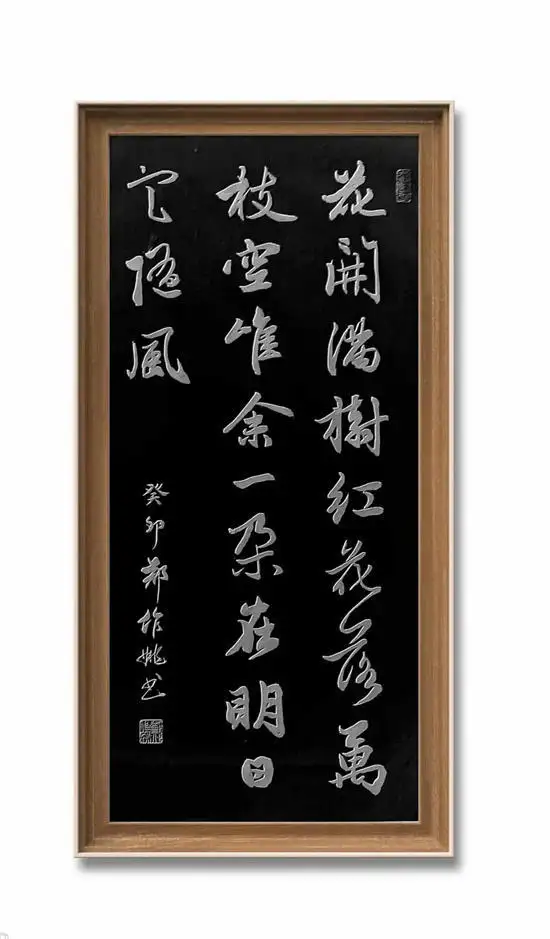 花開滿樹紅花落萬
枝空唯余一朵在明日
定隨風
癸卯郑作姚书